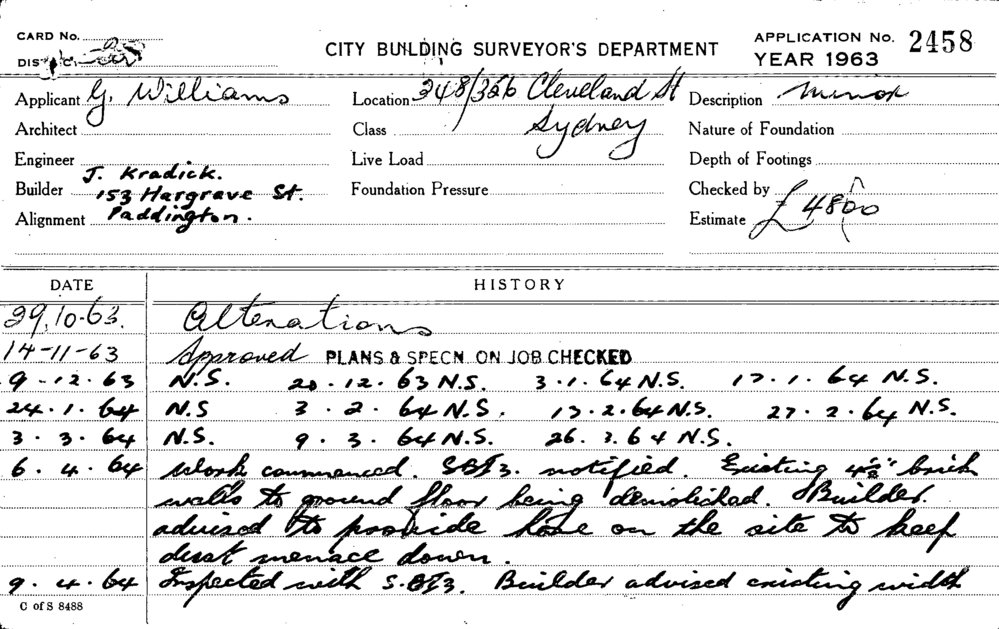 CARD No.
DISTRICT
CITY BUILDING SURVEYOR'S DEPARTMENT
APPLICATION No. 2458
YEAR 1963
Applicant G. Williams
Location 348/356 Cleveland St
Sydney
Description Minor
Architect
Class
Nature of Foundation
Engineer
Live Load
Depth of Footings
Builder J. Kradick.
153 Hargrave St.
Paddington.
Foundation Pressure
Checked by
Alignment
Estimate £4800
DATE HISTORY
29.10.63. Alterations
14-11-63 Approved PLANS & SPECN ON JOB CHECKED
9-12.63 N.S. 20.12.63 N.S. 3.1.64 N.S. 17.1.64 N.S.
24.1.64 N.S 3.2.64 N.S. 13.2.64 N.S. 27.2.64 N.S.
3.3.64 N.S. 9.3.64 N.S. 26.3.64 N.S.
6.4.64 Work commenced. notified. Existing 4½" brick
walls to ground floor being demolished. Builder.
advised to provide hose on the site to keep
dust menace down.
9.4.64 Inspected with Builder advised existing width
C of S 8488